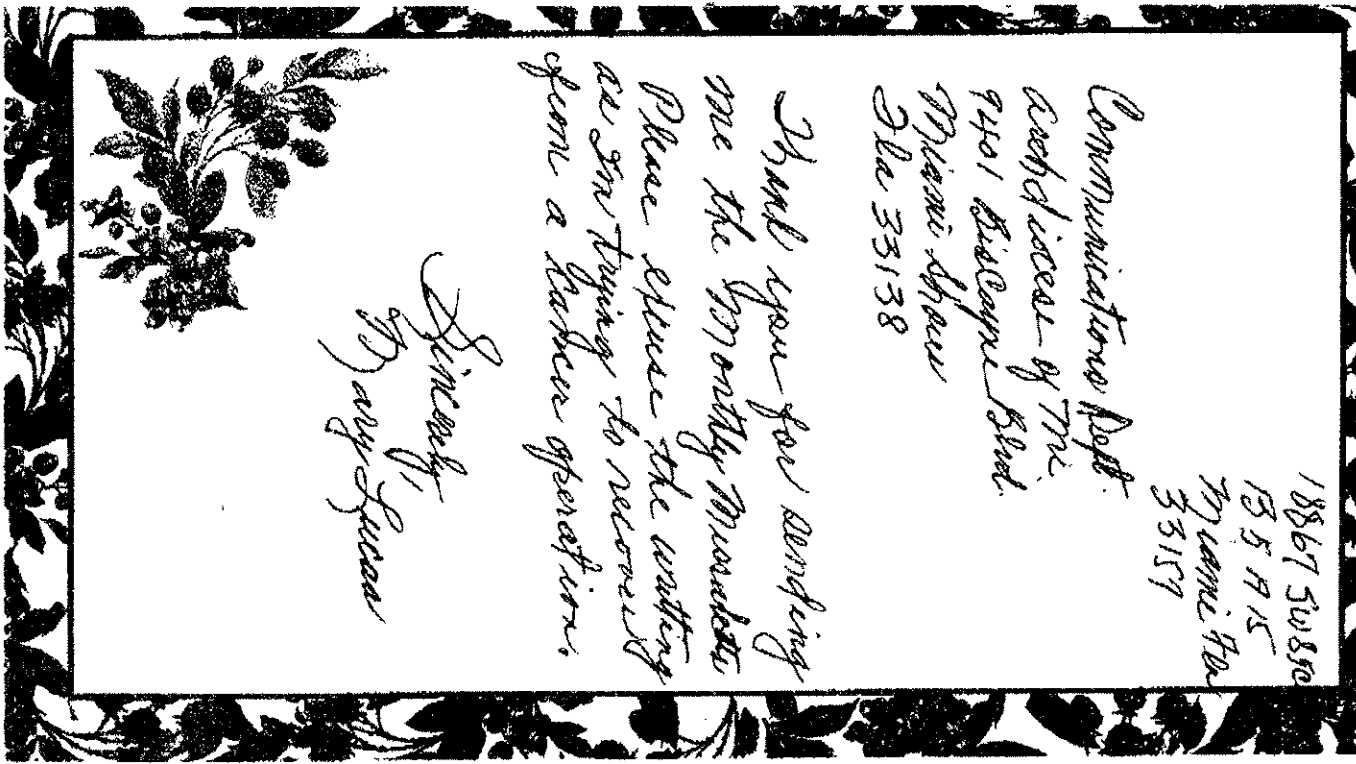 18867 SW 850
B 5 A 15
Miami Fla
33157
Communications Dept.
Archdiocese of Mi
9401 Biscayne Blvd.
Miami Shores
Fla 33138
Thank you for sending
me the Monthly Missalette
Please excuse the writting
as Im trying to recover
from a Cancer operation.
Sincerely,
Mary Lucas